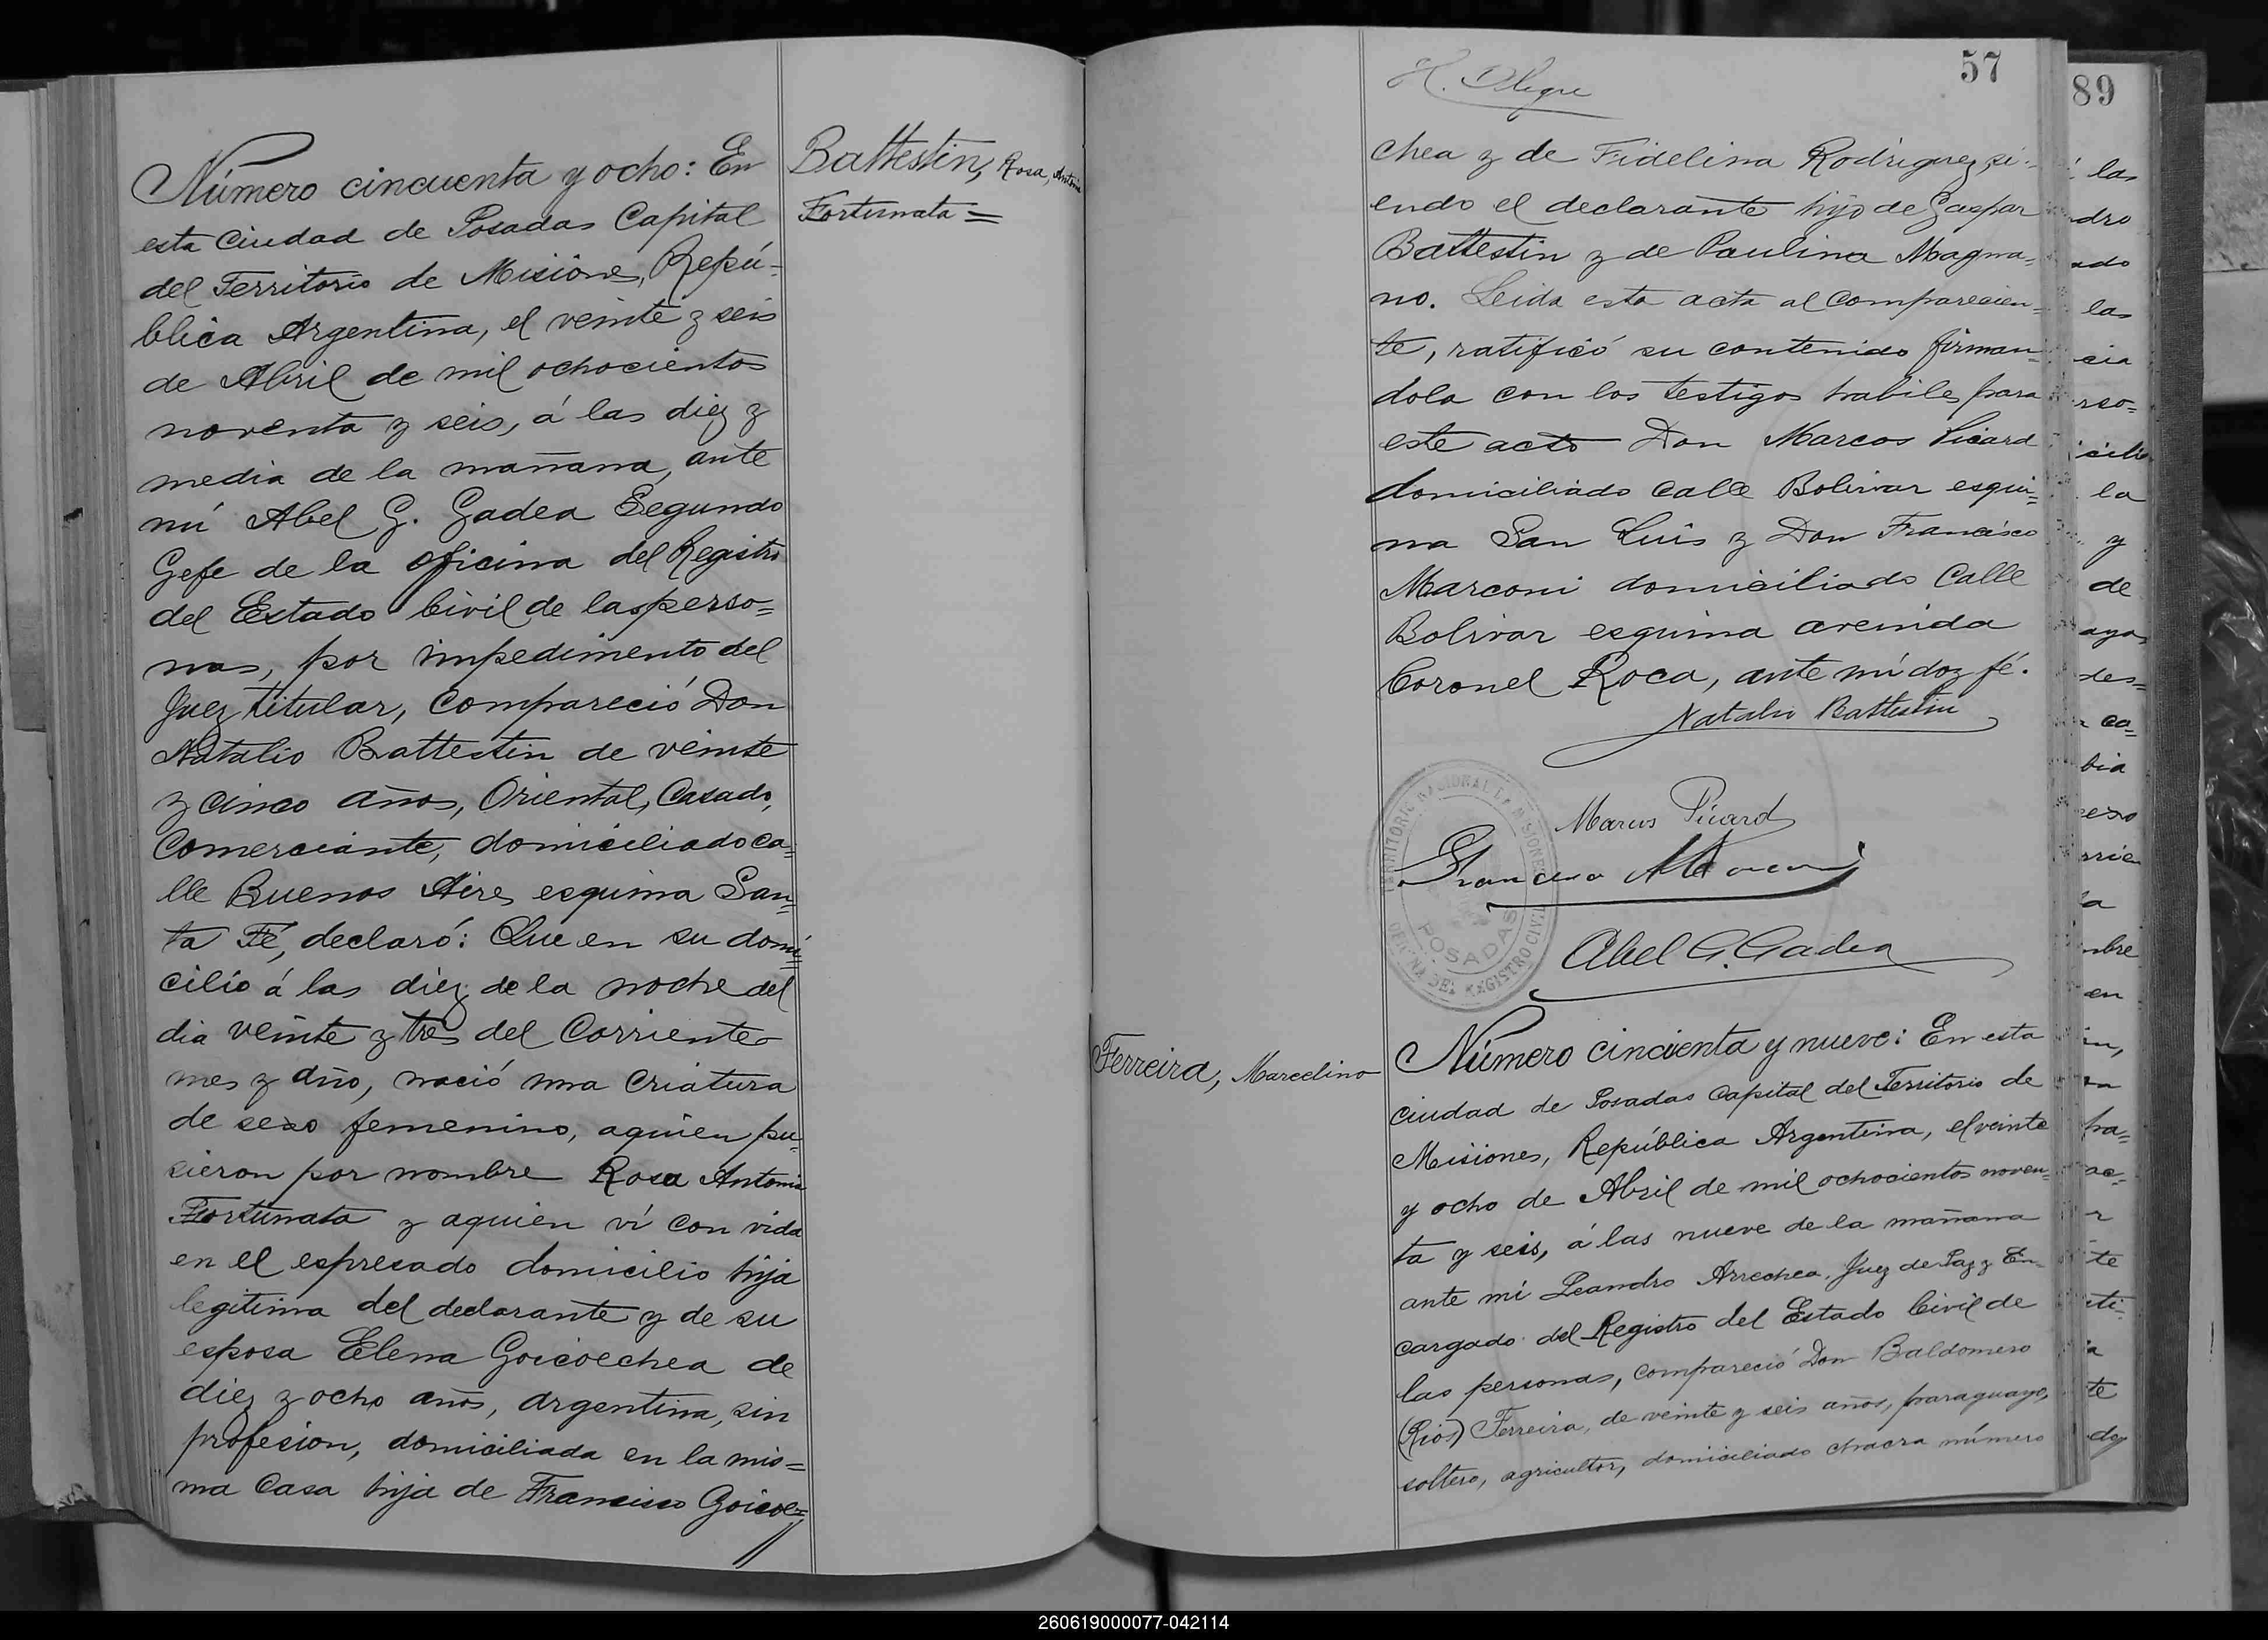 Número cincuenta y ocho: En
esta Ciudad de Posadas Capital
del Territorio de Misiones, Repú=
blica Argentina, el veinte y seis
de Abril de mil ochocientos
noventa y seis, á las diez y
media de la mañana, ante
mí Abel G. Gadea Segundo
Gefe de la oficina del Registro
del Estado Civil de las perso=
nas, por impedimento del
Juez titular, Compareció Don
Natalio Battestin de veinte
y cinco años, Oriental, Casado,
Comerciante, domiciliado ca=
lle Buenos Aires esquina San=
ta Fé, declaró: Que en su domi=
cilio á las diez de la noche del
dia veinte y tres del Corriente
mes y año, nació una criatura
de sexo femenino, aquien pu=
sieron por nombre Rosa Antonia
Fortunata y aquien ví con vida
en el espresado domicilio hija
legitima del declarante y de su
esposa Elena Goicoechea de
diez y ocho años, Argentina, sin
profesion, domiciliada en la mis=
ma Casa hija de Francisco Goicoe=
Battestin, Rosa, Antonia
Fortunata =
57
chea y de Fidelina Rodriguez, si-
endo el declarante hijo de Gaspar
Battestin y de Paulina Magna=
no. Leida esta acta al Comparecien=
te, ratificó su contenido firman=
dola con los testigos habiles para
este acto Don Marcos Picard
domiciliado Calle Bolivar esqui=
na San Luis y Don Francisco
Marconi domiciliado Calle
Bolivar esquina avenida
Coronel Roca, ante mí doy fé.
Natalio Battestin
Marcos Picard
Francisco Marconi
Abel G. Gadea
TERRITORIO NACIONAL DE MISIONES
POSADAS
OFICINA DEL REGISTRO CIVIL
Ferreira, Marcelino
Número cincuenta y nueve: En esta
ciudad de Posadas Capital del Territorio de
Misiones, República Argentina, el veinte
y ocho de Abril de mil ochocientos noven=
ta y seis, á las nueve de la mañana
ante mi Leandro Arrechea, Juez de Paz y En-
cargado del Registro del Estado Civil de
las personas, compareció Don Baldomero
(Rios) Ferreira, de veinte y seis años, paraguayo,
soltero, agricultor, domiciliado chacra número
89
las
dro
ado
las
cia
rso=
la
y
de
des=
ca=
bia
la
nbre
en
pa=
te
te
260619000077-042114